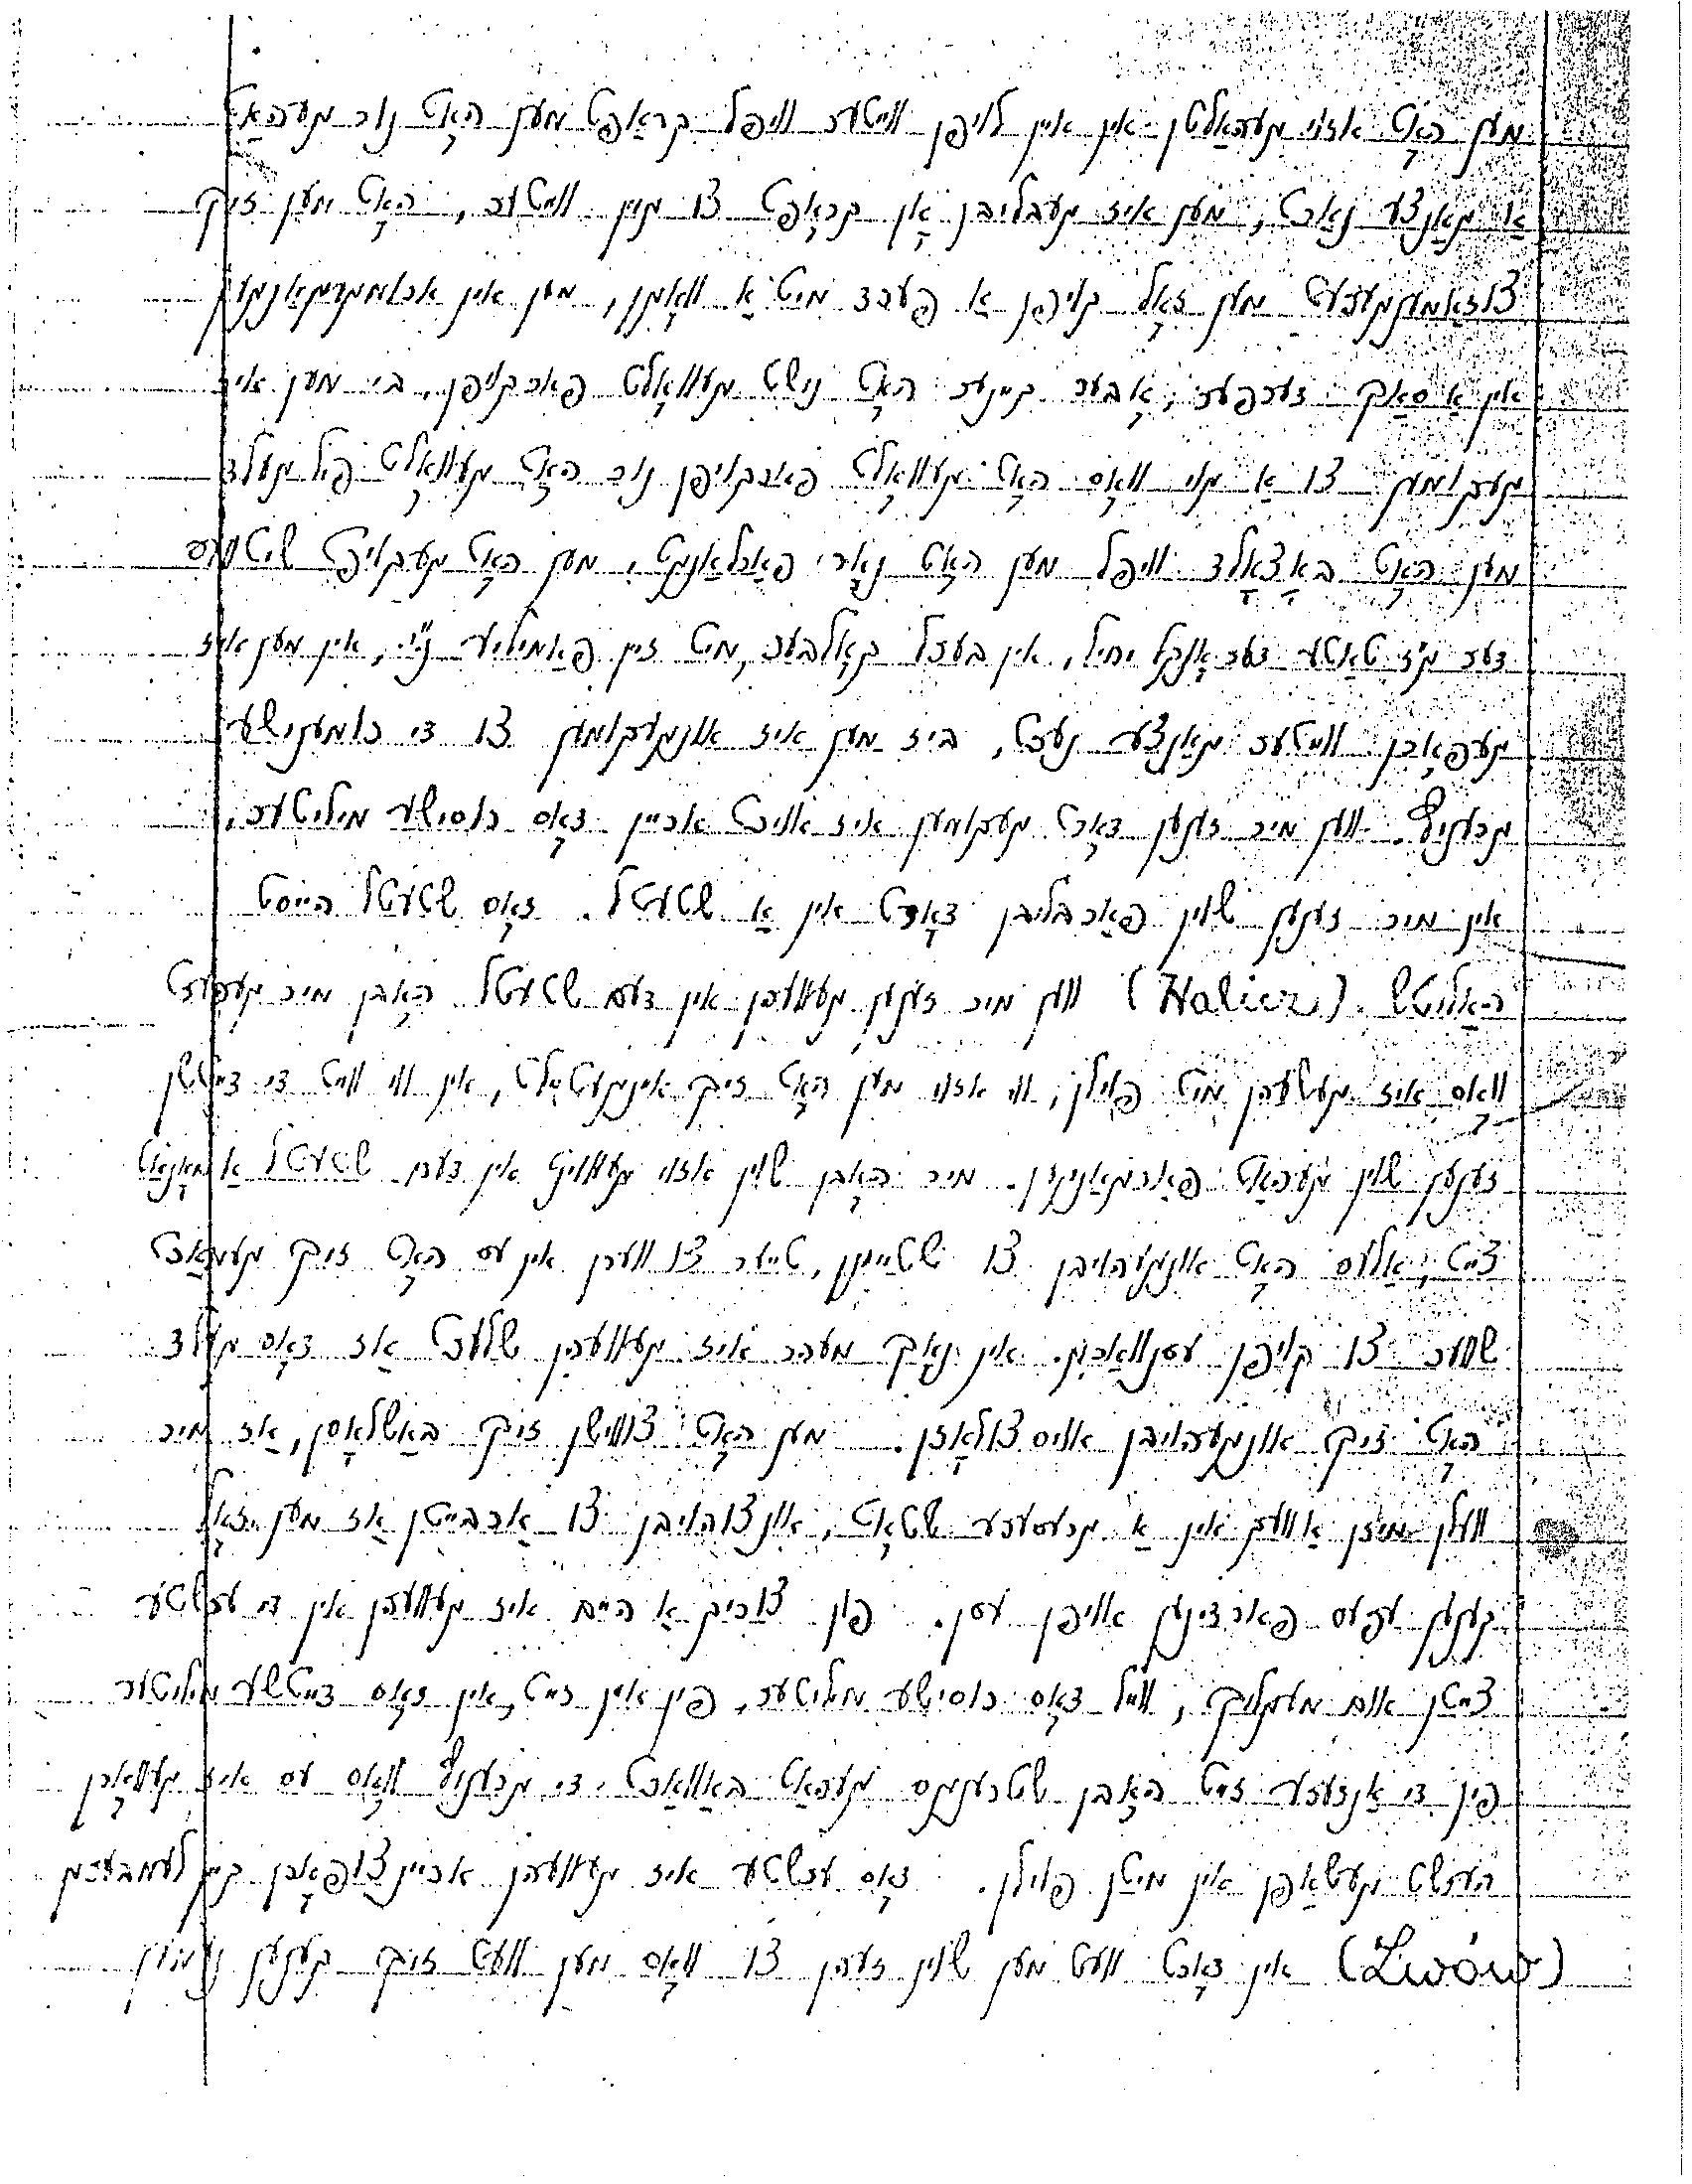 מען האָט אזוי געהאַלטן אין איין לויפן ווײַטער וויפל קראַפט מען האָט נור געהאַט
אַ גאַנצע נאַכט, מען איז געבליבן אָן קראַפט צו גיין ווײַטער, האָט מען זיך
צוזאַמענגערעט מען זאָל קויפן אַ פערד מיט אַ וואָגן, מען אין ארומגעגאַנגען
אין אַ סאַך דערפער, אָבער קיינער האָט נישט געוואָלט פארקויפן, בי מען איז
געקומען צו אַ גוי וואָס האָט געוואָלט פארקויפן נור האָט געוואָלט פיל געלד
מען האָט באַצאָלד וויפל מען האָט נאָר פאַרלאַנגט. מען האָט געקויפט שיטעס
דער מיט טאַטע דער אָנקל יחיאל, אין בערל קאָלבער, מיט זיין פאַמיליע נ"י, אין מען איז
געפאָרן ווײַטער גאַנצע נעכט, ביז מען איז אונגעקומען צו די רומענישע
גרעניץ. ווען מיר זענען דאָרט געקומען איז אויכט אריין דאָס רוסישע מיליטער,
אין מיר זענען שוין פאַרבליבן דאָרט אין אַ שטעטל. דאָס שטעטל הייסט
האַליטש (Halicz) ווען מיר זענען געווערן אין דעם שטעטל האָבן מיר געהערט
וואָס איז געשערן מיט פוילן, ווי אזוי מען האָט זיך אינגעטיילט, אין ווי ווײַט די דײַטשן
זענען שוין געהאַט פאַרגאַנגען. מיר האָבן שוין אזוי געוואוינט אין דעם שטעטל אַ מאָנאַט
צײַט, אַלעס האָט אונגעהויבן צו שטײַגן, טײַער צו ווערן אין עס האָט זיך געמאַכט
שווער צו קויפן עסנוואַרג. אין נאָך מער איז געווערן שלעכט אַז דאָס געלד
האָט זיך אונגעהויבן אויסצולאָזן. מען האָט צווישן זיך באַשלאָסן, אַז מיר
וועלן מיזן אַוועק אין אַ גרעסערע שטאָט, אונצוהויבן צו אַרבייטן אַז מען זאָל
קענען עפעס פארדינען אויפן עסן. פון צוריק אַ היים איז געווערן אין די ערשטע
צײַטן אום מעגליך, ווײַל דאָס רוסישע מיליטער, פין איין זײַט, אין דאָס דײַטשע מיליטער
פין די אַנדערע זײַט האָבן שטרענגס געהאַט באַוואַכט. די גרעניץ וואָס עס איז געוואָרן
הערשט געשאַפן אין מיטן פוילן. דאָס ערשטע איז געווערן אריינצופאָרן קיין לעמבערג
(Lwów) אין דאָרט וועט מען שוין זעהן צו וואָס מען וועט זיך קענען נעמען